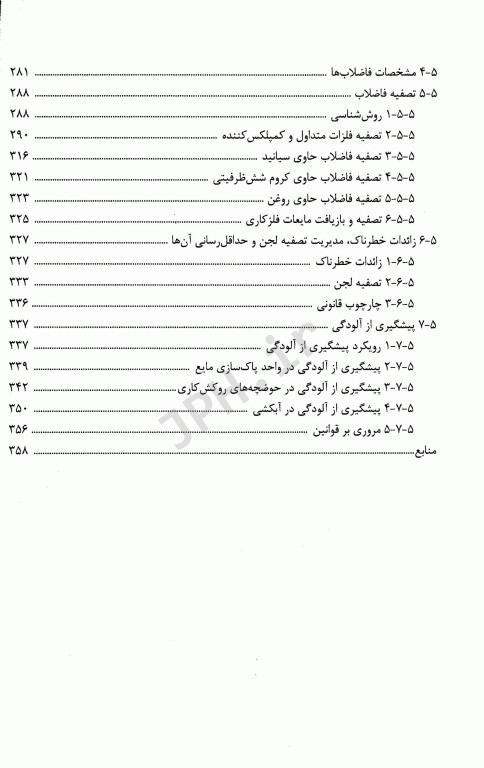 ۴-۵ مشخصات فاضلاب‌ها ........ ۲۸۱
۵-۵ تصفیه فاضلاب ........ ۲۸۸
۱-۵-۵ روش‌شناسی ........ ۲۸۸
۲-۵-۵ تصفیه فلزات متداول و کمپلکس‌کننده ........ ۲۹۰
۳-۵-۵ تصفیه فاضلاب حاوی سیانید ........ ۳۱۶
۴-۵-۵ تصفیه فاضلاب حاوی کروم شش‌ظرفیتی ........ ۳۲۱
۵-۵-۵ تصفیه فاضلاب حاوی روغن ........ ۳۲۳
۶-۵-۵ تصفیه و بازیافت مایعات فلزکاری ........ ۳۲۵
۶-۵ زائدات خطرناک، مدیریت تصفیه لجن و حداقل‌رسانی آن‌ها ........ ۳۲۷
۱-۶-۵ زائدات خطرناک ........ ۳۲۷
۲-۶-۵ تصفیه لجن ........ ۳۳۳
۳-۶-۵ چارچوب قانونی ........ ۳۳۶
۷-۵ پیشگیری از آلودگی ........ ۳۳۷
۱-۷-۵ رویکرد پیشگیری از آلودگی ........ ۳۳۷
۲-۷-۵ پیشگیری از آلودگی در واحد پاک‌سازی مایع ........ ۳۳۹
۳-۷-۵ پیشگیری از آلودگی در حوضچه‌های روکش‌کاری ........ ۳۴۲
۴-۷-۵ پیشگیری از آلودگی در آبکشی ........ ۳۵۰
۵-۷-۵ مروری بر قوانین ........ ۳۵۶
منابع ........ ۳۵۸
JPH.ir